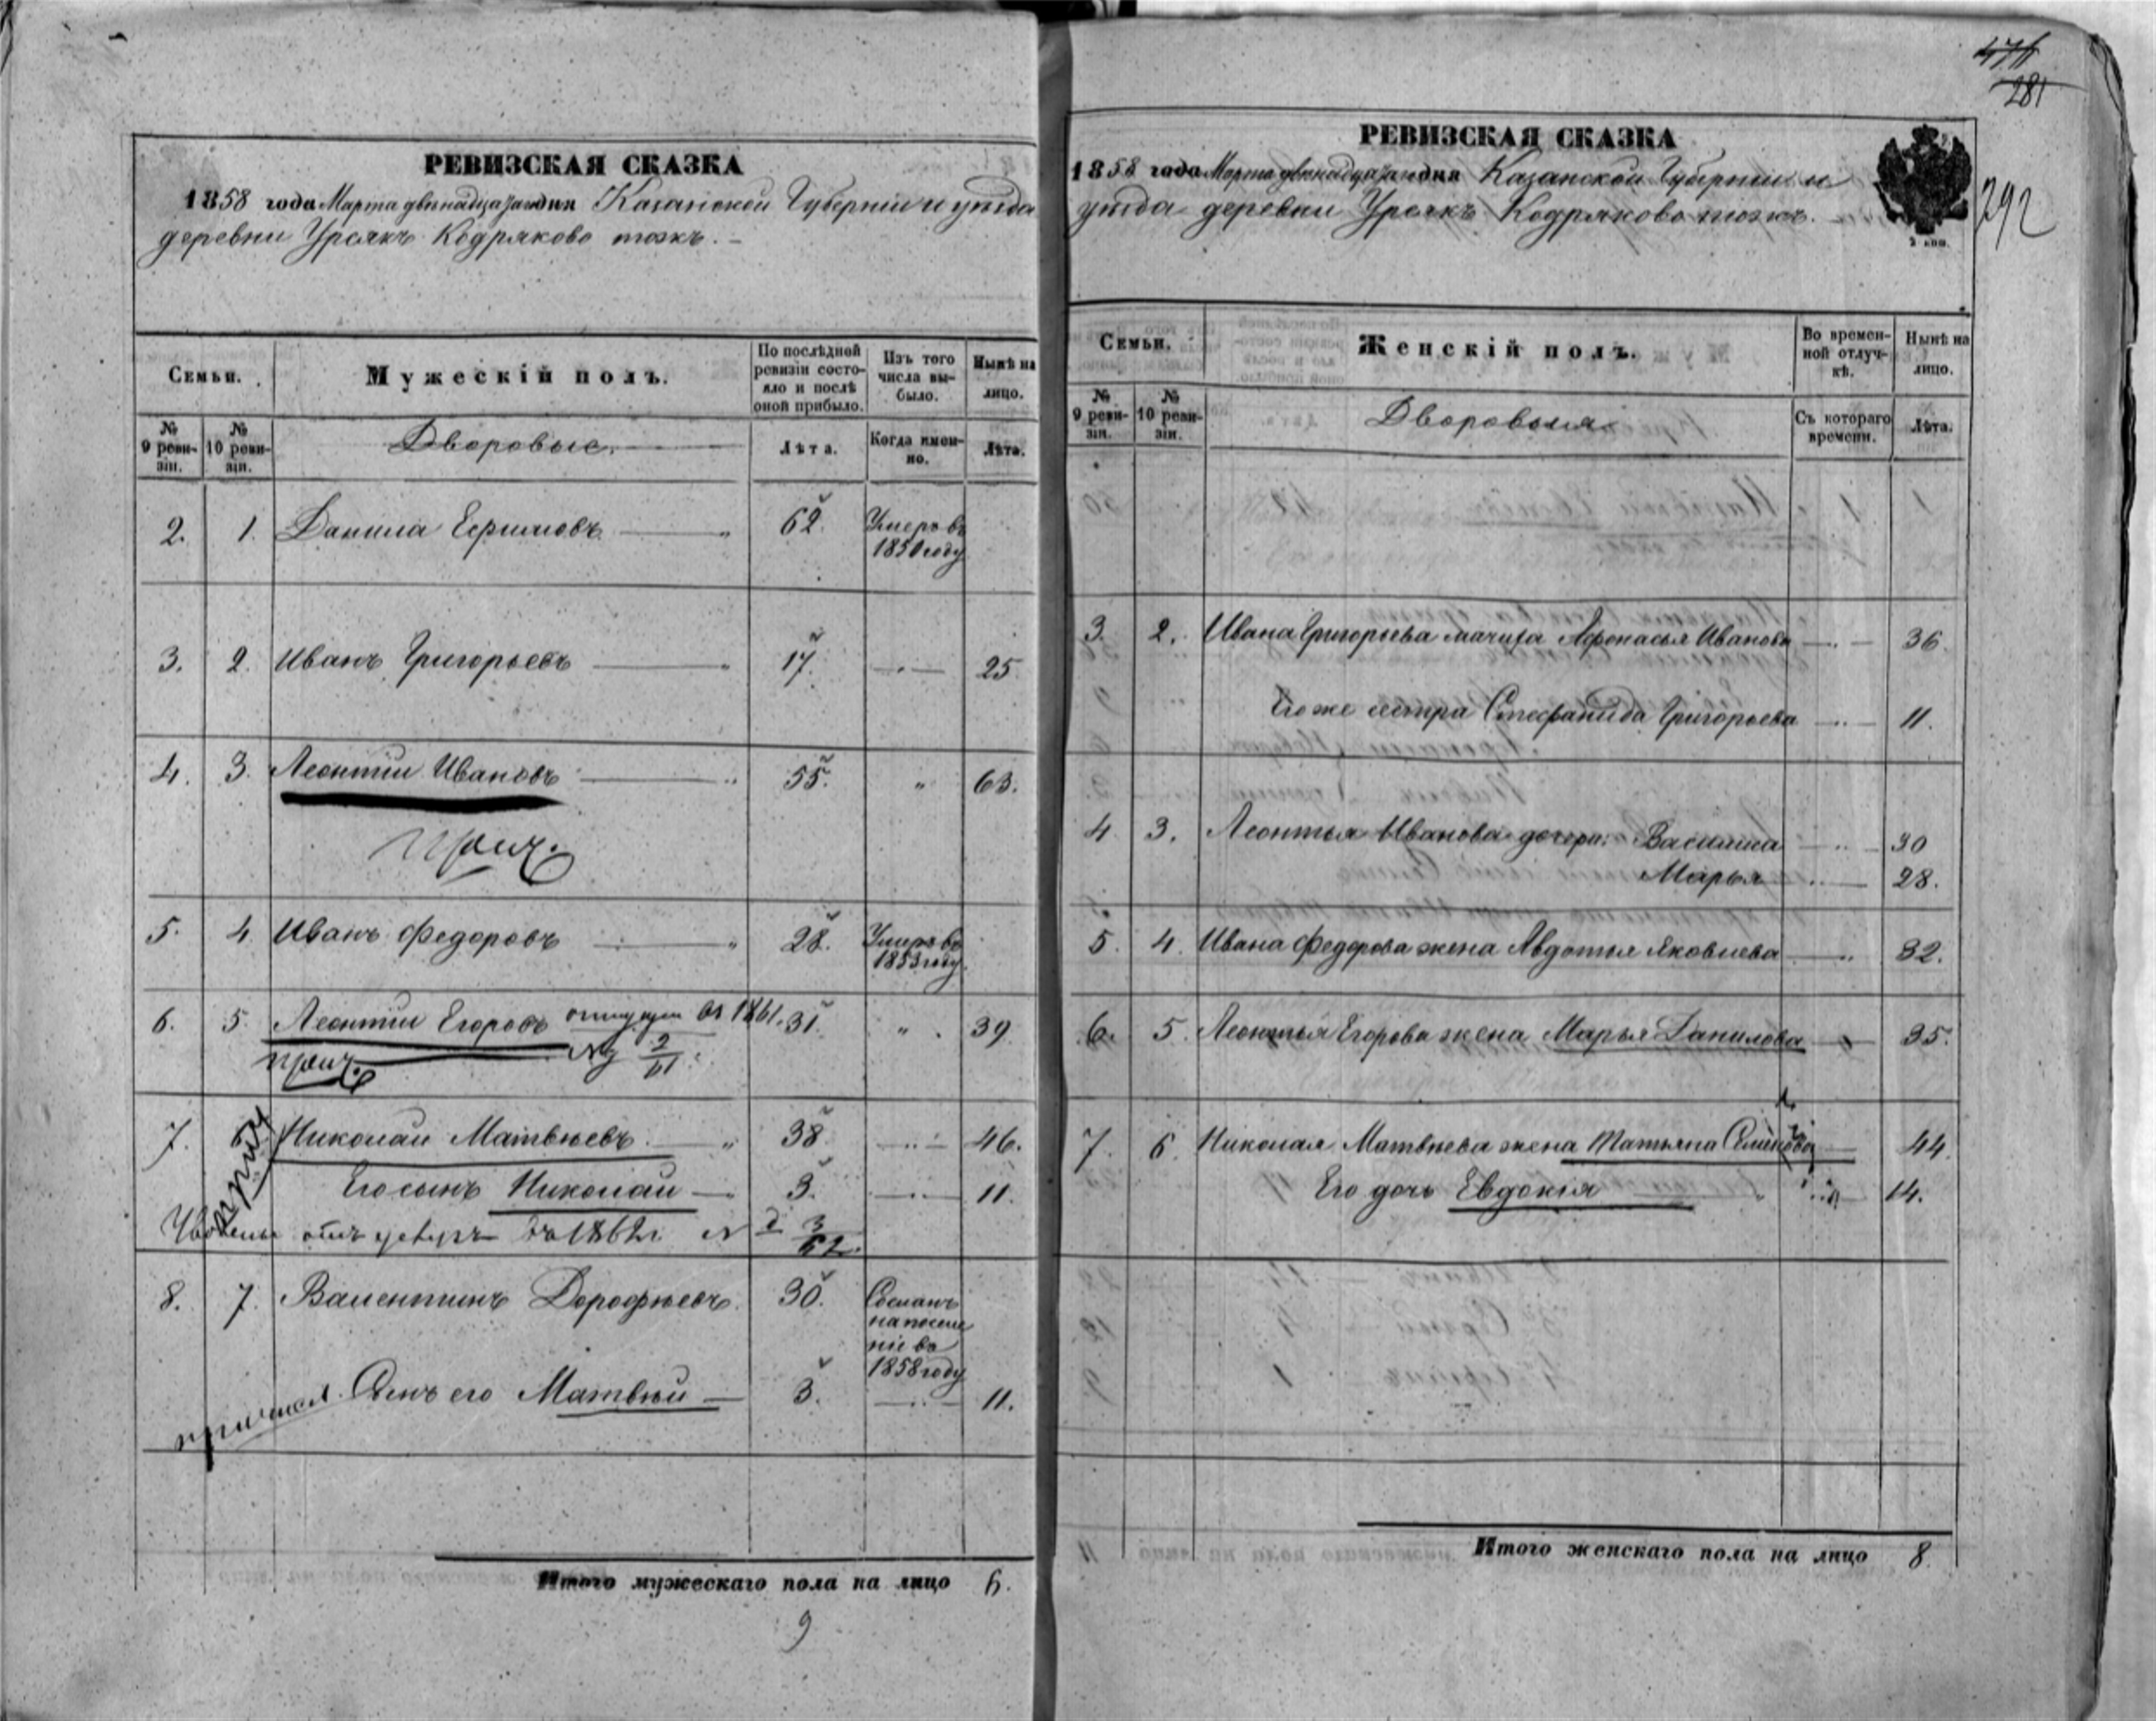 РЕВИЗСКАЯ СКАЗКА
1858 года Марта двенадцатаго дня Казанской Губернии и уезда
деревни Урсякъ Кодряково тожъ.
Семьи.
Мужескій полъ.
По послѣдной ревизіи состояло и послѣ оной прибыло.
Изъ того числа выбыло.
Нынѣ на лицо.
№ 9 ревизіи.
№ 10 ревизіи.
Дворовые.
Лѣта.
Когда именно.
Лѣта.
2. 1. Данила Ефимовъ 62. Умеръ въ
1850 году
3. 2. Иванъ Григорьевъ 17. 25
4. 3. Леонтіи Ивановъ 55. " 63.
прич.
5. 4. Иванъ Федоровъ 28. Умеръ въ
1853 году
6. 5. Леонтіи Егоровъ отпущен въ 1861. 31. " 39
прич. 2/61
7. 6. Николаи Матвѣевъ 38 46.
прич
Его сынъ Николаи 3. 11.
въ 1862 3/62
8. 7. Валентинъ Дорофѣевъ 30. Сосланъ
на поселе
ніе въ
1858 году
причисл. Сынъ его Матвѣи 3. 11.
Итого мужескаго пола на лицо 6.
9
476
281
292
РЕВИЗСКАЯ СКАЗКА
1858 года Марта двенадцатаго дня Казанской Губернии и
уезда деревни Урсякъ Кодряково тожъ.
2 коп.
Семьи.
Женскій полъ.
Во временной отлучкѣ.
Нынѣ на лицо.
№ 9 ревизіи.
№ 10 ревизіи.
Дворовыя
Съ котораго времени.
Лѣта.
3. 2. Ивана Григорьева мачиха Афонасья Иванова 36.
Его же сестра Стефанида Григорьева 11.
4 3. Леонтья Иванова дочери: Василиса 30
Марья 28.
5. 4. Ивана Федорова жена Авдотья Яковлева 32.
6. 5. Леонтья Егорова жена Марья Данилова 35.
7 6. Николая Матвѣева жена Татьяна 44
Его дочь Евдокія 14.
Итого женскаго пола на лицо 8.